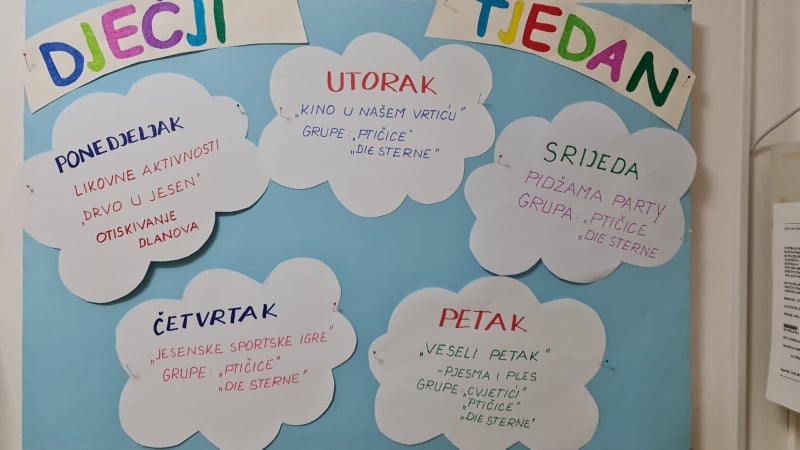 DJEČJI TJEDAN
PONEDJELJAK
LIKOVNE AKTIVNOSTI
„DRVO U JESEN"
OTISKIVANJE
DLANOVA
UTORAK
„KINO U NAŠEM VRTIĆU"
GRUPE: „PTIČICE"
„DIE STERNE"
SRIJEDA
PIDŽAMA PARTY
GRUPA: „PTIČICE
„DIE STERNE
ČETVRTAK
„JESENSKE SPORTSKE IGRE"
GRUPE: „PTIČICE"
„DIE STERNE"
PETAK
„VESELI PETAK"
-PJESMA I PLES
GRUPE: „CVJETIĆI"
„PTIČICE"
„DIE STERNE"